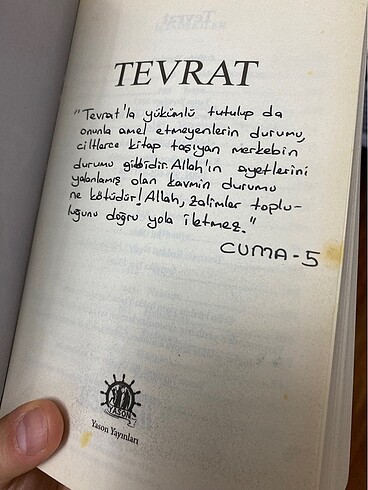 TEVRAT
"Tevrat'la yükümlü tutulup da
onunla amel etmeyenlerin durumu,
ciltlerce kitap taşıyan merkebin
durumu gibidir. Allah'ın ayetlerini
yalanlamış olan kavmin durumu
ne kötüdür! Allah, zalimler toplu-
luğunu doğru yola iletmez."
CUMA - 5
YASON
Yason Yayınları